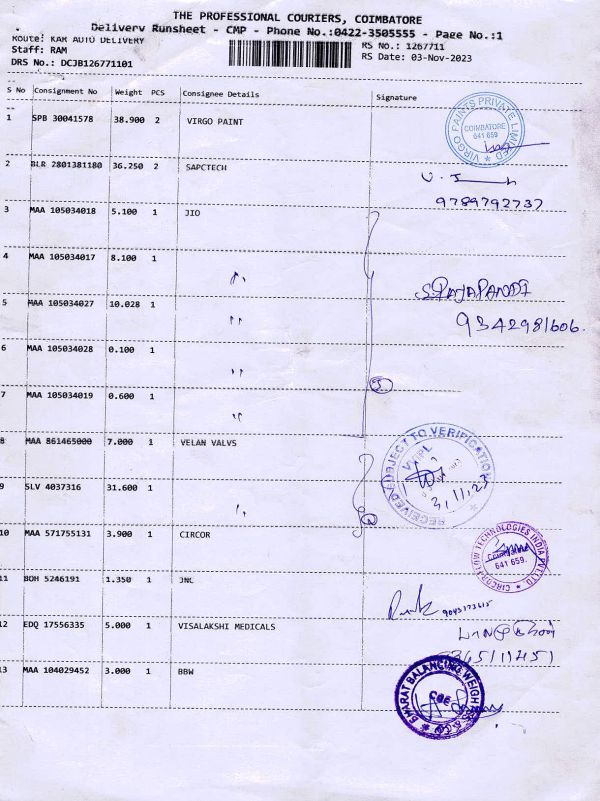 THE PROFESSIONAL COURIERS, COIMBATORE
Delivery Runsheet - CMP - Phone No.:0422-3505555 - Page No.:1
Route: KAR AUTO DELIVERY
Staff: RAM
DRS No.: DCJB126771101
RS No.: 1267711
RS Date: 03-Nov-2023
S No Consignment No Weight PCS Consignee Details Signature
1 SPB 30041578 38.900 2 VIRGO PAINT
VIRGO PAINTS PRIVATE LIMITED
COIMBATORE
641 659
2 BLR 2801381180 36.250 2 SAPCTECH
9789792737
3 MAA 105034018 5.100 1 JIO
4 MAA 105034017 8.100 1 "
5 MAA 105034027 10.028 1 "
9342981606.
6 MAA 105034028 0.100 1 "
7 MAA 105034019 0.600 1 "
5
8 MAA 861465000 7.000 1 VELAN VALVS
RECEIVED SUBJECT TO VERIFICATION
3,11,23
9 SLV 4037316 31.600 1 "
2
10 MAA 571755131 3.900 1 CIRCOR
CIRCOR FLOW TECHNOLOGIES INDIA PVT LTD
641 659.
11 BOH 5246191 1.350 1 JNL
12 EDQ 17556335 5.000 1 VISALAKSHI MEDICALS
13 MAA 104029452 3.000 1 BBW
BHARAT BALANCING WEIGHTS & CO
CBE